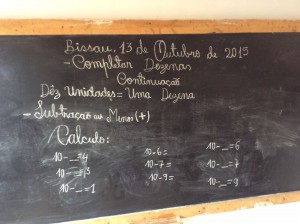 Bissau, 13 de Outubro de 2015
- Completar Dozenas
Continuação
Dêz Unidades = Uma Dezena
- Subtração ou Menos (+)
Calculo:
10-__=4 10-6= 10-__=6
10-__=3 10-7= 10-__=7
10-__=1 10-9= 10-__=9